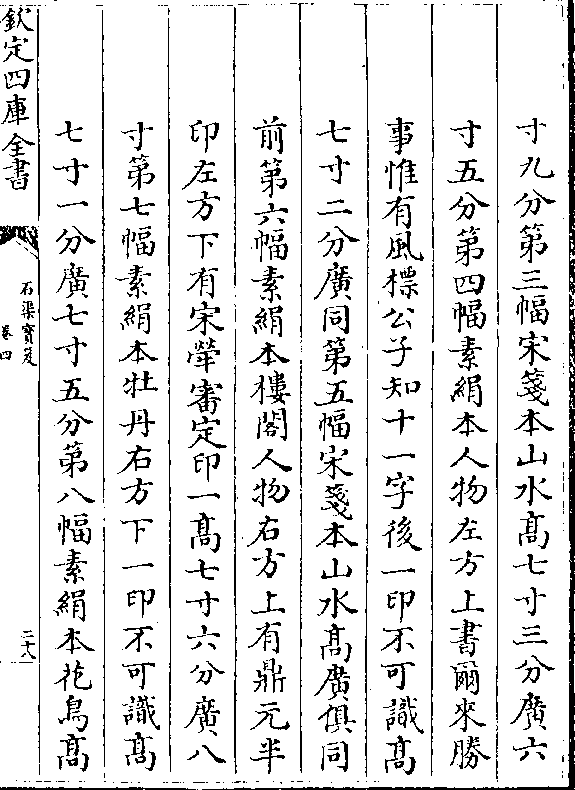 寸九分第三幅宋箋本山水高七寸三分廣六
寸五分第四幅素絹本人物左方上書爾來勝
事惟有風標公子知十一字後一印不可識高
七寸二分廣同第五幅宋箋本山水高廣俱同
前第六幅素絹本樓閣人物右方上有鼎元半
印左方下有宋犖審定印一高七寸六分廣八
寸第七幅素絹本牡丹右方下一印不可識高
七寸一分廣七寸五分第八幅素絹本花鳥高
欽定四庫全書
石渠寶笈
卷四
二十八